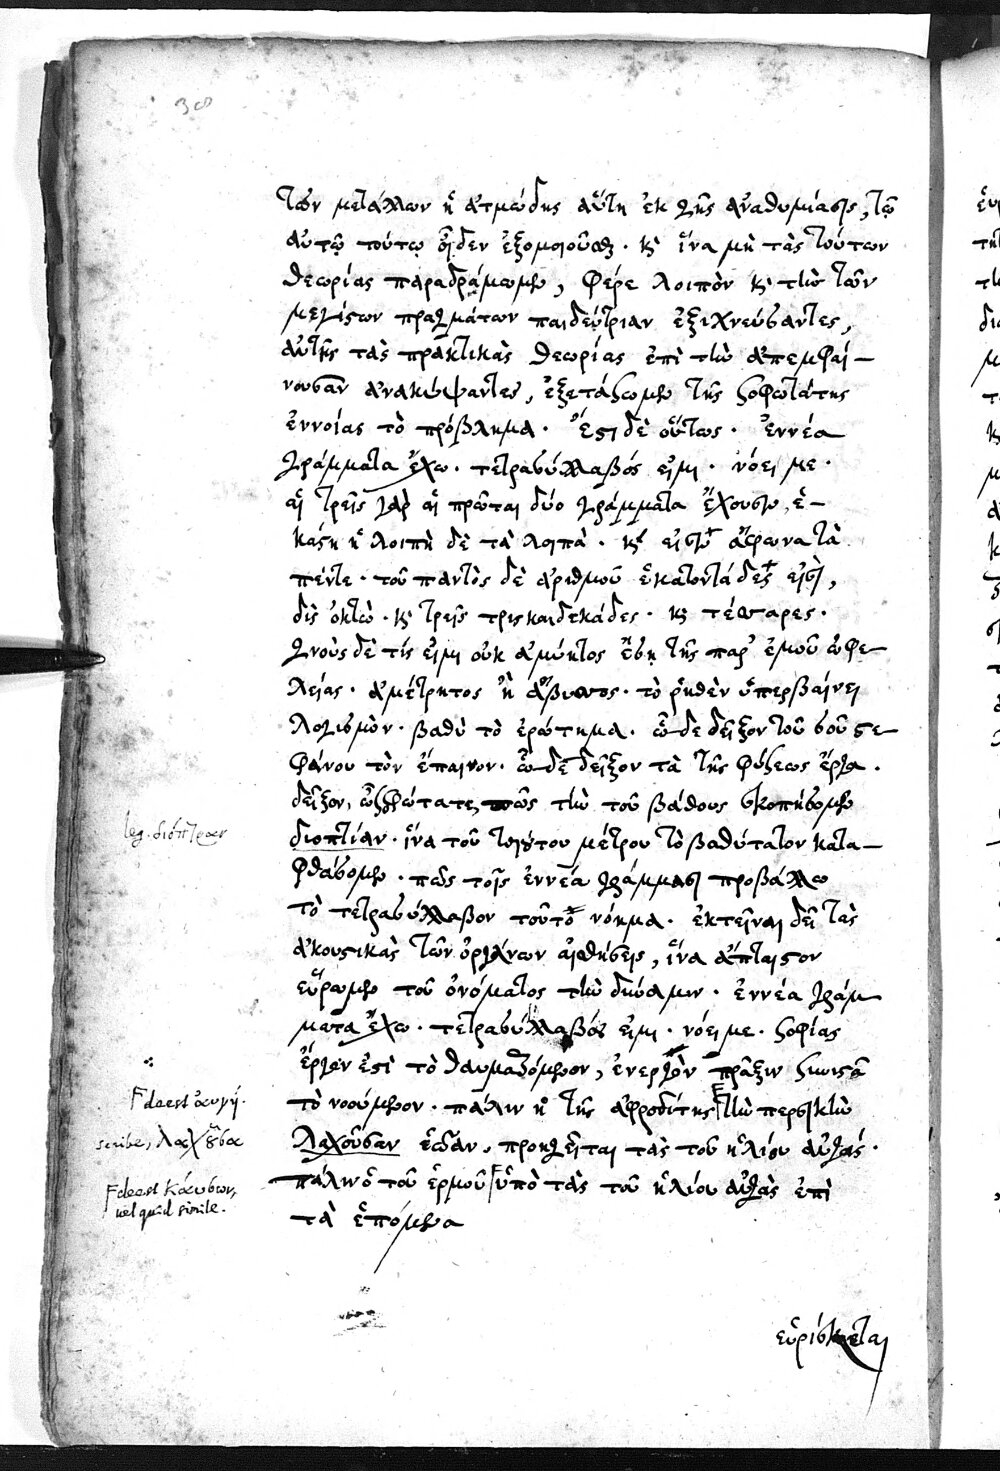 30
τῶν μετάλλων ἡ ἀτμώδης αὕτη ἐκ γῆς ἀναθυμίασις, τῷ
αὐτῷ τούτῳ οἶδεν ἐξομοιοῦσθαι. καὶ ἵνα μὴ τὰς τούτων
θεωρίας παραδράμωμεν, φέρε λοιπὸν καὶ τὴν τῶν
μεγίστων πραγμάτων παιδεύτριαν ἐξιχνεύσαντες,
αὐτῆς τὰς πρακτικὰς θεωρίας ἐπὶ τὴν ἀπεμφαί–
νουσαν ἀνακύψαντες, ἐξετάσωμεν τῆς σοφωτάτης
ἐννοίας τὸ πρόβλημα. Ἔστι δὲ οὕτως. Ἐννέα
γράμματα ἔχω. τετρασύλλαβός εἰμι. νόει με.
αἱ τρεῖς γὰρ αἱ πρῶται δύο γράμματα ἔχουσιν, ἑ–
κάστη ἡ λοιπὴ δὲ τὰ λοιπὰ. καὶ εἰσὶν ἄφωνα τὰ
πέντε. τοῦ παντὸς δὲ ἀριθμοῦ ἑκατοντάδες εἰσὶ,
δὶς ὀκτὼ. καὶ τρεῖς τρισκαιδεκάδες. καὶ τέσσαρες.
γνοὺς δὲ τίς εἰμι οὐκ ἀμύητος ἔσῃ τῆς παρ' ἐμοῦ ὠφε
λείας. ἀμέτρητος ἡ ἄβυσσος. τὸ ῥηθὲν ὑπερβαίνει
λογισμὸν. βαθὺ τὸ ἐρώτημα. ὧδε δεῖξον τοῦ σοῦ στε
φάνου τὸν ἔπαινον. ὧδε δεῖξον τὰ τῆς φύσεως ἔργα.
δεῖξον, ὦ σοφώτατε, πῶς τὴν τοῦ βάθους σκοπήσομεν
διοπτίαν. ἵνα τοῦ τοιούτου μέτρου τὸ βαθύτατον κατα–
φθάσομεν. πῶς τοῖς ἐννέα γράμμασι προβάλλω
τὸ τετρασύλλαβον τοῦτο νόημα. ἐκτεῖναι δεῖ τὰς
ἀκουστικὰς τῶν ὀργάνων αἰσθήσεις, ἵνα ἄπταιστον
εὕρωμεν τοῦ ὀνόματος τὴν δύναμιν. ἐννέα γράμ
ματα ἔχω. τετρασύλλαβός εἰμι. νόει με. σοφίας
ἔργον ἐστὶ τὸ θαυμαζόμενον, ἐνεργὸν πρᾶξιν
τὸ νοούμενον. πάλιν ἡ τῆς ἀφροδίτης τὴν περσικὴν
λαχοῦσαν ἑῴαν, προηγεῖται τὰς τοῦ ἡλίου αὐγάς.
πάλιν ὁ τοῦ ἑρμοῦ ὑπὸ τὰς τοῦ ἡλίου αὐγὰς ἐπὶ
τὰ ἑπόμενα
εὑρίσκεται
leg. διόπτραν
F deest αὐγή.
scribe, λαχοῦσα
F deest
vel quid simile.